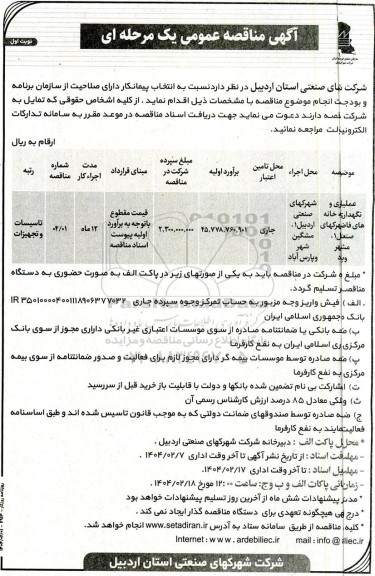 نوبت اول
آگهی مناقصه عمومی یک مرحله ای
شرکت های صنعتی استان اردبیل در نظر دارد نسبت به انتخاب پیمانکار دارای صلاحیت از سازمان برنامه
و بودجه انجام موضوع مناقصه با مشخصات ذیل اقدام نماید . از کلیه اشخاص حقوقی که تمایل به
شرکت دارند دعوت می نماید جهت دریافت اسناد مناقصه در موعد مقرر به سامانه تدارکات
الکترونیک مراجعه نمایید.
ارقام به ریال
موضوع محل اجراء محل تامین اعتبار برآورد اولیه مبلغ سپرده شرکت در مناقصه مبنای قرارداد مدت اجراء کار شماره مناقصه رتبه
عملیاری و نگهداری خانه های فاضلاب شهرکهای صنعتی اردبیل ۱، مشگین شهر وپارس آباد جاری ۴۵،۷۷۸،۷۶۰،۹۰۱ ۲،۳۰۰،۰۰۰،۰۰۰ قیمت مقطوع باتوجه به برآورد اولیه پیوست اسناد مناقصه ۱۲ ماه ۰۴/۰۱ تاسیسات و تجهیزات
* شرکت در مناقصه باید به یکی از صورتهای زیر در پاکت الف به صورت حضوری به دستگاه
مناقصه تسلیم گردد.
الف ) فیش واریز وجه مزبور به حساب تمرکز وجوه سپرده جاری IR
بانک جمهوری اسلامی ایران
ب) بانکی یا ضمانتنامه صادره از سوی موسسات اعتباری غیر بانکی دارای مجوز از سوی بانک
مرکزی اسلامی ایران به نفع کارفرما
پ) صادره توسط موسسات بیمه گر دارای مجوز لازم برای فعالیت و صدور ضمانتنامه از سوی بیمه
مرکزی به نفع کارفرما
ت) بی نام تضمین شده بانکها و دولت با قابلیت باز خرید قبل از سررسید
ث) ملکی معادل ۸۵ درصد ارزش کارشناس رسمی آن
ج) صادره توسط صندوقهای ضمانت دولتی که به موجب قانون تاسیس شده اند و طبق اساسنامه
فعالیت نمایند به نفع کارفرما
* پاکت الف : دبیرخانه شرکت شهرکهای صنعتی اردبیل .
اسناد : از تاریخ نشر آگهی تا آخر وقت اداری ۱۴۰۴/۰۲/۷ .
- اسناد : تا آخر وقت اداری ۱۴۰۴/۰۲/۱۷.
- پاکات الف و ب و ج: ساعت ۱۲:۰۰ مورخ ۱۴۰۴/۰۲/۱۸
* پیشنهادات شش ماه از آخرین روز تسلیم پیشنهادات خواهد بود
* هیچگونه تعهدی برای دستگاه مناقصه گذار ایجاد نمی کند .
* کلیه مناقصه از طریق سامانه ستاد به آدرس www.setadiran.ir انجام خواهد شد.
Internet : www . ardebiliec.ir
شرکت شهرکهای صنعتی استان اردبیل